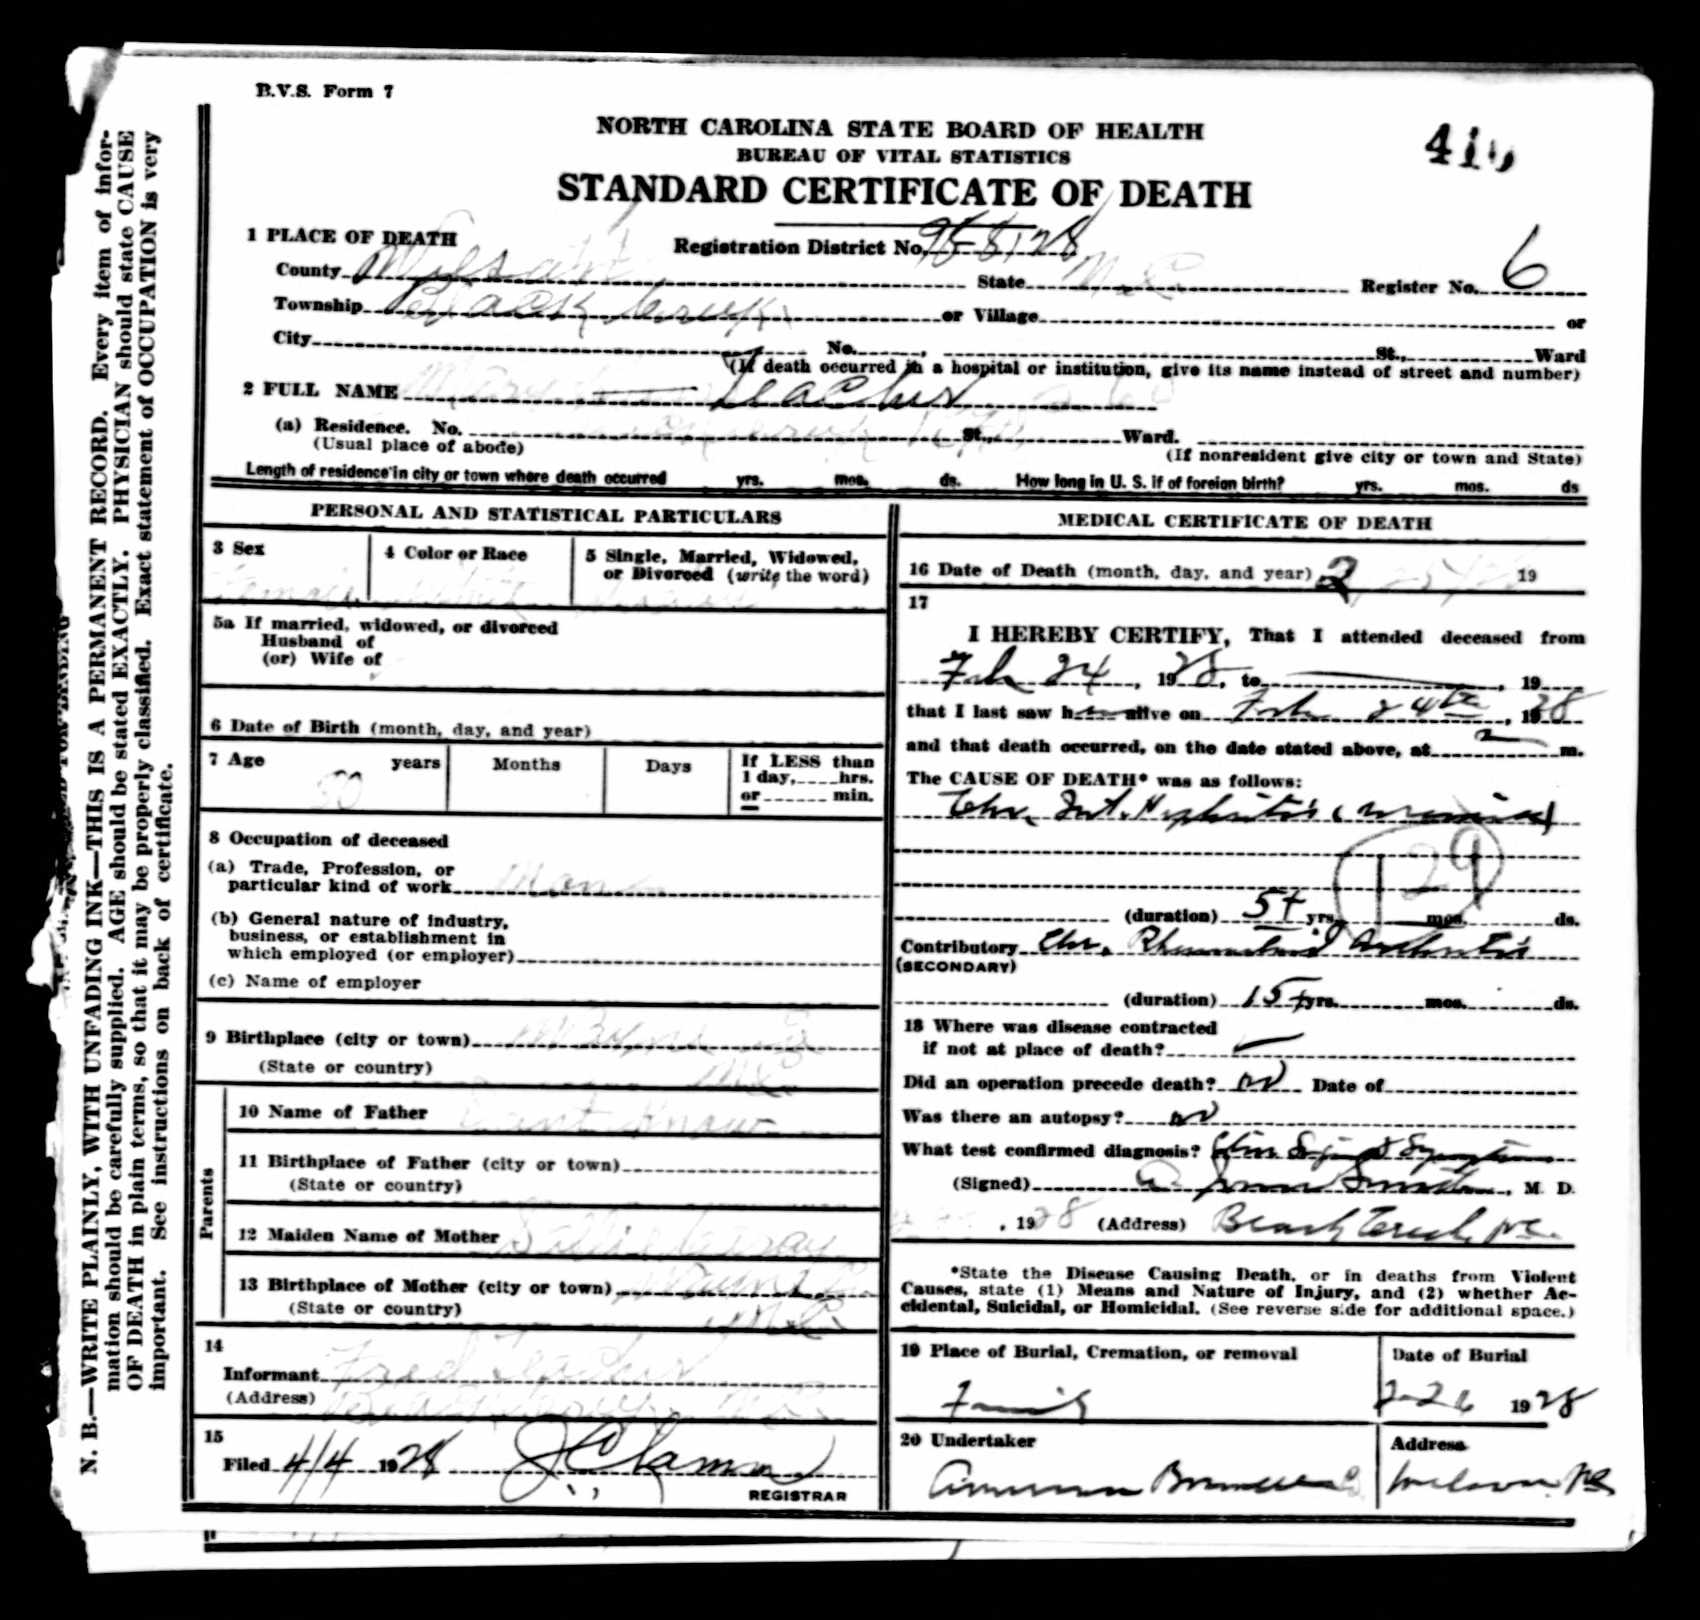 B.V.S. Form 7
NORTH CAROLINA STATE BOARD OF HEALTH
BUREAU OF VITAL STATISTICS
STANDARD CERTIFICATE OF DEATH
1 PLACE OF DEATH
Registration District No.
County Wilson
State N.C.
Register No. 6
Township Black Creek or Village or
City No. St., Ward
(If death occurred in a hospital or institution, give its name instead of street and number)
2 FULL NAME
(a) Residence. No. St., Ward.
(Usual place of abode)
(If nonresident give city or town and State)
Length of residence in city or town where death occurred yrs. mos. ds. How long in U. S. if of foreign birth? yrs. mos. ds
PERSONAL AND STATISTICAL PARTICULARS
3 Sex
4 Color or Race
5 Single, Married, Widowed,
or Divorced (write the word)
Female
5a If married, widowed, or divorced
Husband of
(or) Wife of
6 Date of Birth (month, day, and year)
7 Age years
Months
Days
If LESS than
1 day, hrs.
or min.
8 Occupation of deceased
(a) Trade, Profession, or
particular kind of work
(b) General nature of industry,
business, or establishment in
which employed (or employer)
(c) Name of employer
9 Birthplace (city or town) Wayne
(State or country) N.C.
Parents
10 Name of Father Dont Know
11 Birthplace of Father (city or town)
(State or country)
12 Maiden Name of Mother Sallie
13 Birthplace of Mother (city or town) Wayne
(State or country) N.C.
14
Informant Fred
(Address) Black Creek N.C.
15
Filed 4/4 1928
REGISTRAR
MEDICAL CERTIFICATE OF DEATH
16 Date of Death (month, day, and year) 2 19
17
I HEREBY CERTIFY, That I attended deceased from
Feb 24, 1928, to , 19
that I last saw her alive on Feb 24th, 1928
and that death occurred, on the date stated above, at m.
The CAUSE OF DEATH* was as follows:
Chr. Int. Nephritis (Uremia)
129
(duration) 5+ yrs. mos. ds.
Contributory Chr. Rheumatoid Arthritis
(SECONDARY)
(duration) 15+ yrs. mos. ds.
18 Where was disease contracted
if not at place of death?
Did an operation precede death? no Date of
Was there an autopsy? no
What test confirmed diagnosis? Clin Signs & Symptoms
(Signed) , M. D.
, 1928 (Address) Black Creek, N.C.
*State the Disease Causing Death, or in deaths from Violent
Causes, state (1) Means and Nature of Injury, and (2) whether Ac-
cidental, Suicidal, or Homicidal. (See reverse side for additional space.)
19 Place of Burial, Cremation, or removal
Date of Burial
Family
2-26 1928
20 Undertaker
Address
Wilson N.C.
N. B.—WRITE PLAINLY, WITH UNFADING INK—THIS IS A PERMANENT RECORD. Every item of infor-
mation should be carefully supplied. AGE should be stated EXACTLY. PHYSICIAN should state CAUSE
OF DEATH in plain terms, so that it may be properly classified. Exact statement of OCCUPATION is very
important. See instructions on back of certificate.